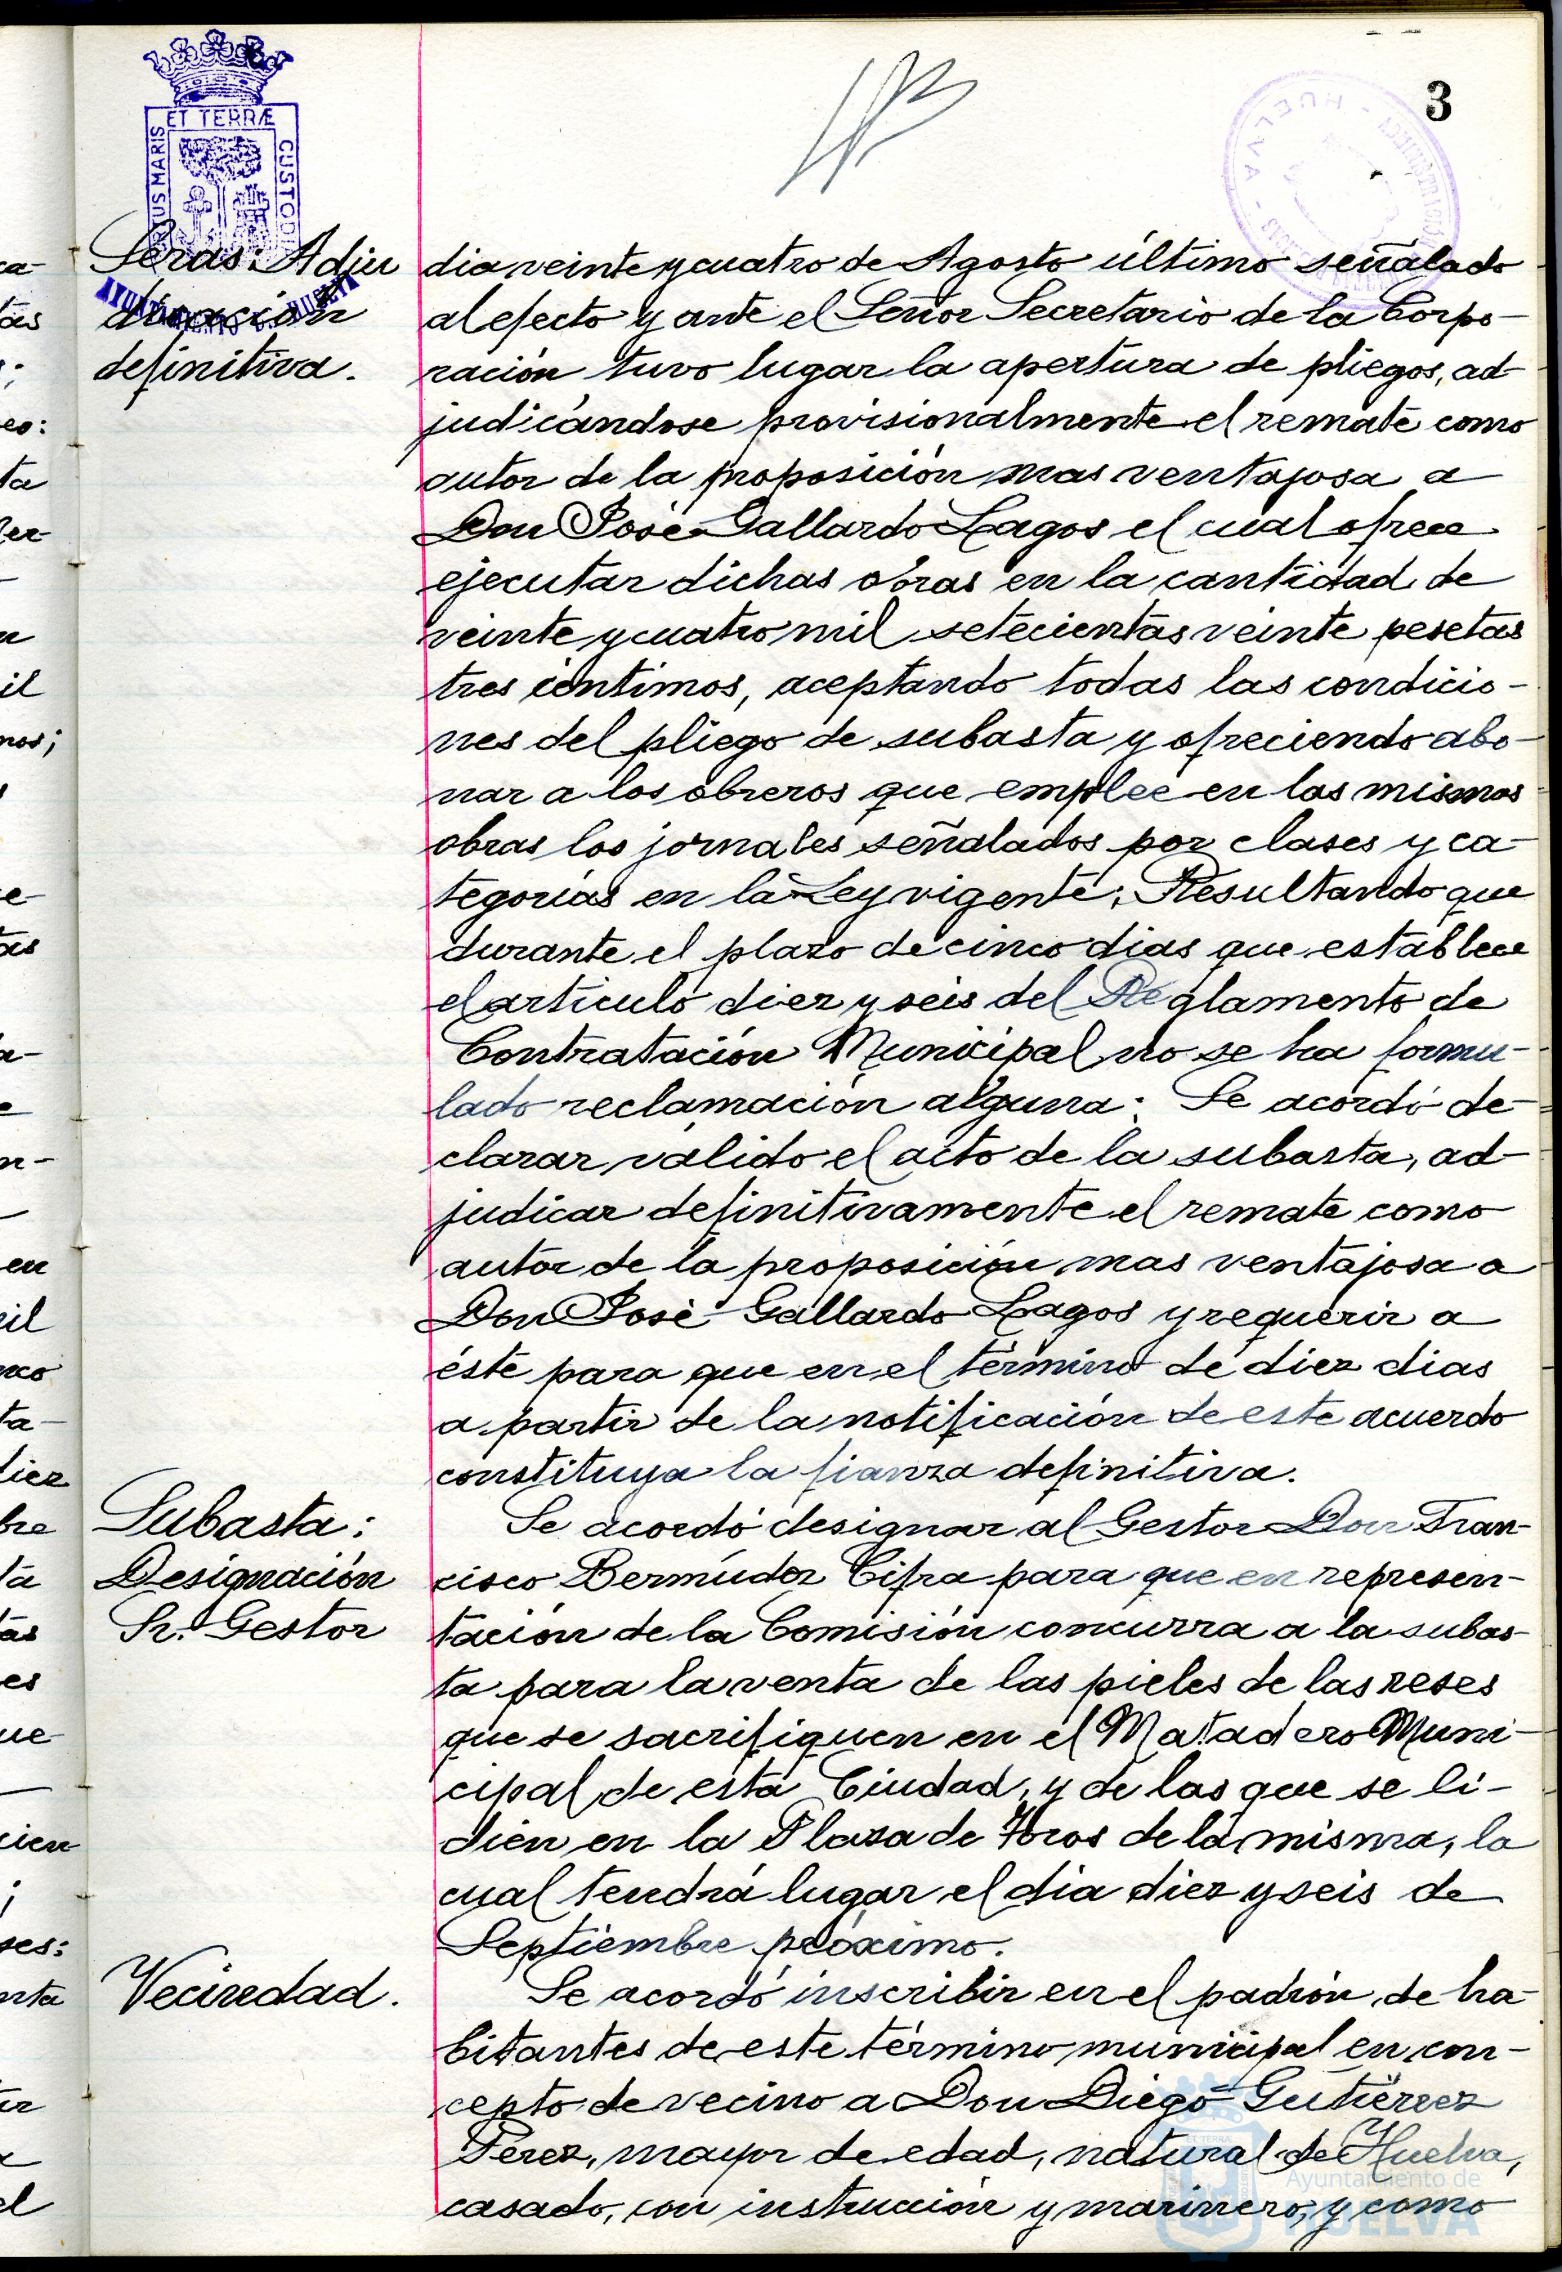 3
ET TERRÆ
CUSTODIA
PORTUS MARIS
AYUNTAMIENTO DE HUELVA
HUELVA
Seras: Adju
dicación
definitiva.
dia veinte y cuatro de Agosto último señalado
al efecto y ante el Señor Secretario de la Corpo-
ración tuvo lugar la apertura de pliegos, ad-
judicándose provisionalmente el remate como
autor de la proposición mas ventajosa a
Don José Gallardo Lagos el cual ofrece
ejecutar dichas obras en la cantidad de
veinte y cuatro mil setecientas veinte pesetas
tres céntimos, aceptando todas las condicio-
nes del pliego de subasta y ofreciendo abo-
nar a los obreros que emplee en las mismas
obras los jornales señalados por clases y ca-
tegorías en la Ley vigente; Resultando que
durante el plazo de cinco dias que establece
el artículo diez y seis del Reglamento de
Contratación Municipal no se ha formu-
lado reclamación alguna: Se acordó de-
clarar válido el acto de la subasta, ad-
judicar definitivamente el remate como
autor de la proposición mas ventajosa a
Don José Gallardo Lagos y requerir a
éste para que en el término de diez dias
a partir de la notificación de este acuerdo
constituya la fianza definitiva.
Subasta:
Designación
Sr. Gestor
Se acordó designar al Gestor Don Fran-
cisco Bermúdez Cifra para que en represen-
tación de la Comisión concurra a la subas-
ta para la venta de las pieles de las reses
que se sacrifiquen en el Matadero Muni-
cipal de esta Ciudad, y de las que se li-
dien en la Plaza de Toros de la misma, la
cual tendrá lugar el dia diez y seis de
Septiembre próximo.
Vecindad.
Se acordó inscribir en el padrón de ha-
bitantes de este término municipal en con-
cepto de vecino a Don Diego Gutiérrez
Pérez, mayor de edad, natural de Huelva,
casado, con instrucción y marinero, y como
Ayuntamiento de
HUELVA